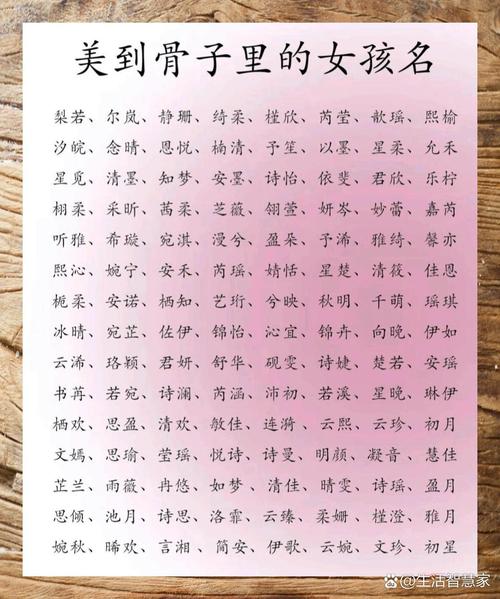 美到骨子里的女孩名
梨若、尔岚、静珊、绮柔、槿欣、芮莹、歆瑶、熙榆
汐皖、念晴、恩悦、楠清、予笙、以墨、星柔、允禾
星觅、清墨、知梦、安墨、诗怡、依斐、君欣、乐柠
栩柔、采昕、茜柔、芝薇、翎萱、妍岑、妙蕾、嘉芮
听雅、希璇、宛淇、漫兮、盈朵、予浠、雅绮、馨亦
熙沁、婉宁、安禾、芮瑶、婧恬、星楚、清筱、佳恩
栀柔、安诺、栖知、艺珩、兮映、秋明、千萌、瑶琪
冰晴、宛芷、佐伊、锦怡、沁宜、锦卉、向晚、伊如
云浠、珞颖、君妍、舒华、砚雯、诗婕、楚若、安瑶
书苒、若宛、诗澜、芮涵、沛初、若溪、星晚、琳伊
栖欢、思盈、清欢、敏佳、连漪、云熙、云珍、初月
文嫣、思瑜、莹瑶、悦诗、诗曼、明颜、凝音、慧佳
芷兰、雨薇、冉悠、如梦、清佳、晴雯、诗瑶、盈月
思倾、池月、诗思、洛霏、云臻、柔姗、槿澄、雅月
婉秋、晞欢、言湘、简安、伊歌、云婉、文珍、初星
@生活智慧家